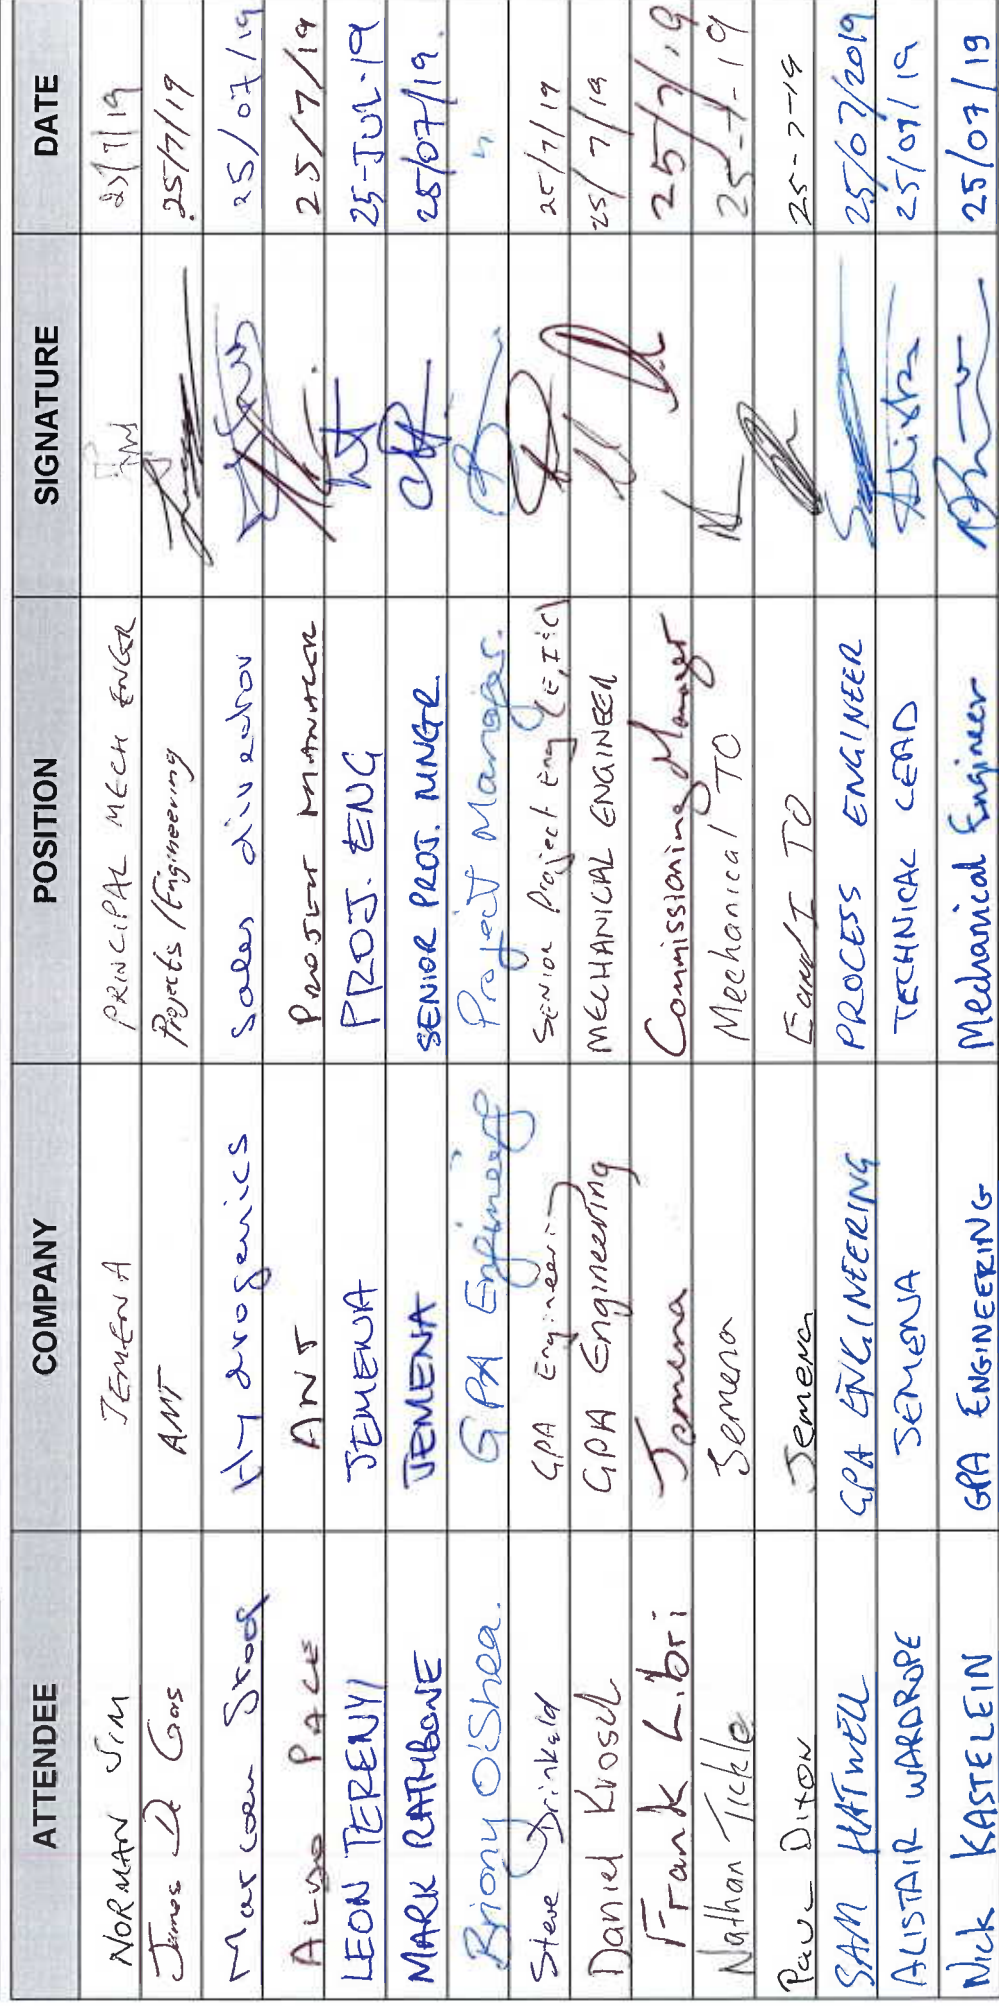 ATTENDEE COMPANY POSITION SIGNATURE DATE
NORMAN JIM JEMENA PRINCIPAL MECH ENGR 25/7/19
James De Gas ANT Projects/Engineering 25/7/19
Hydrogenics Sales director 25/07/19
ALVDO PACE ANT PROJECT MANAGER 25/7/19
LEON TERENYI JEMENA PROJ. ENG 25-JUL-19
MARK RATHBONE JEMENA SENIOR PROJ. MNGR. 25/07/19.
Briony O'Shea. GPA Engineering Project Manager. "
Steve Drinkeld GPA Engineering Senior Project Eng (E, I&C) 25/7/19
Daniel Krosch GPA Engineering MECHANICAL ENGINEER 25/7/19
Frank Libri Jemena Commissioning Manager 25/7/19
Nathan Tickle Jemena Mechanical TO 25-7-19
Paul Dixon Jemena E and I TO 25-7-19
SAM HATWELL GPA ENGINEERING PROCESS ENGINEER 25/07/2019
ALISTAIR WARDROPE JEMENA TECHNICAL LEAD 25/07/19
Nick KASTELEIN GPA ENGINEERING Mechanical Engineer 25/07/19